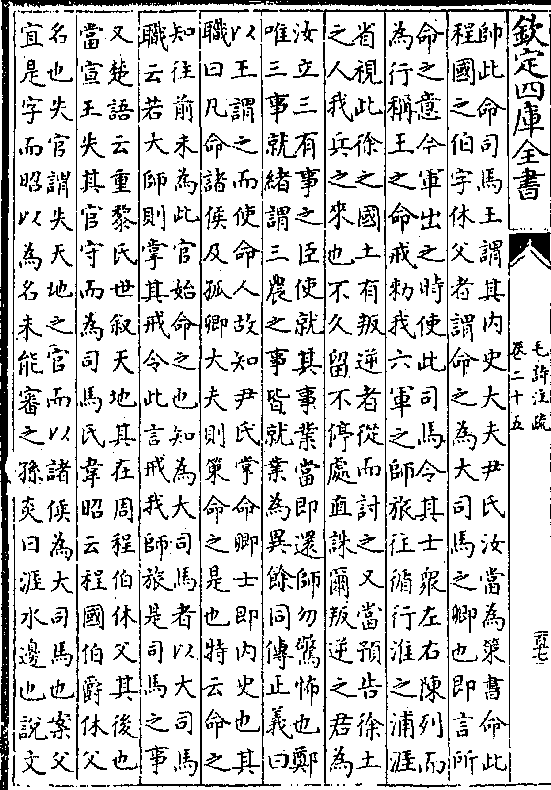 欽定四庫全書
毛詩注疏
卷二十五
百七
帥此命司馬王謂其内史大夫尹氏汝當為策書命此
程國之伯字休父者謂命之為大司馬之卿也即言所
命之意今軍出之時使此司馬令其士眾左右陳列而
為行稱王之命戒勑我六軍之師旅往循行淮之浦涯
省視此徐之國土有叛逆者從而討之又當預告徐土
之人我兵之來也不久留不停處直誅爾叛逆之君為
汝立三有事之臣使就其事業當即還師勿驚怖也鄭
唯三事就緒謂三農之事皆就業為異餘同傳正義曰
以王謂之而使命人故知尹氏掌命卿士即内史也其
職曰凡命諸侯及孤卿大夫則策命之是也特云命之
知往前未為此官始命之也知為大司馬者以大司馬
職云若大師則掌其戒令此言戒我師旅是司馬之事
又楚語云重黎氏世叙天地其在周程伯休父其後也
當宣王失其官守而為司馬氏韋昭云程國伯爵休父
名也失官謂失天地之官而以諸侯為大司馬也案父
宜是字而昭以為名未能審之孫炎曰涯水邊也說文